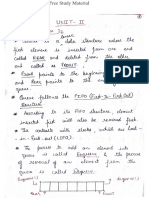 Free Study Material
UNIT - II
Queue is a data structure where the
first element is inserted from one end
called REAR and deleted from the other
end called as FRONT.
Front points to the beginning of the
queue and Rear points to the end of the
queue.
Queue follows the FIFO (First-In-First-Out)
Structure.
According to its FIFO structure, element
inserted first will also be removed first.
The contrast with stacks, which are Last-
in - First-out (LIFO).
The process to add an element into
queue is called Enqueue & the process
of removal of an element from
queue is called Dequeue.